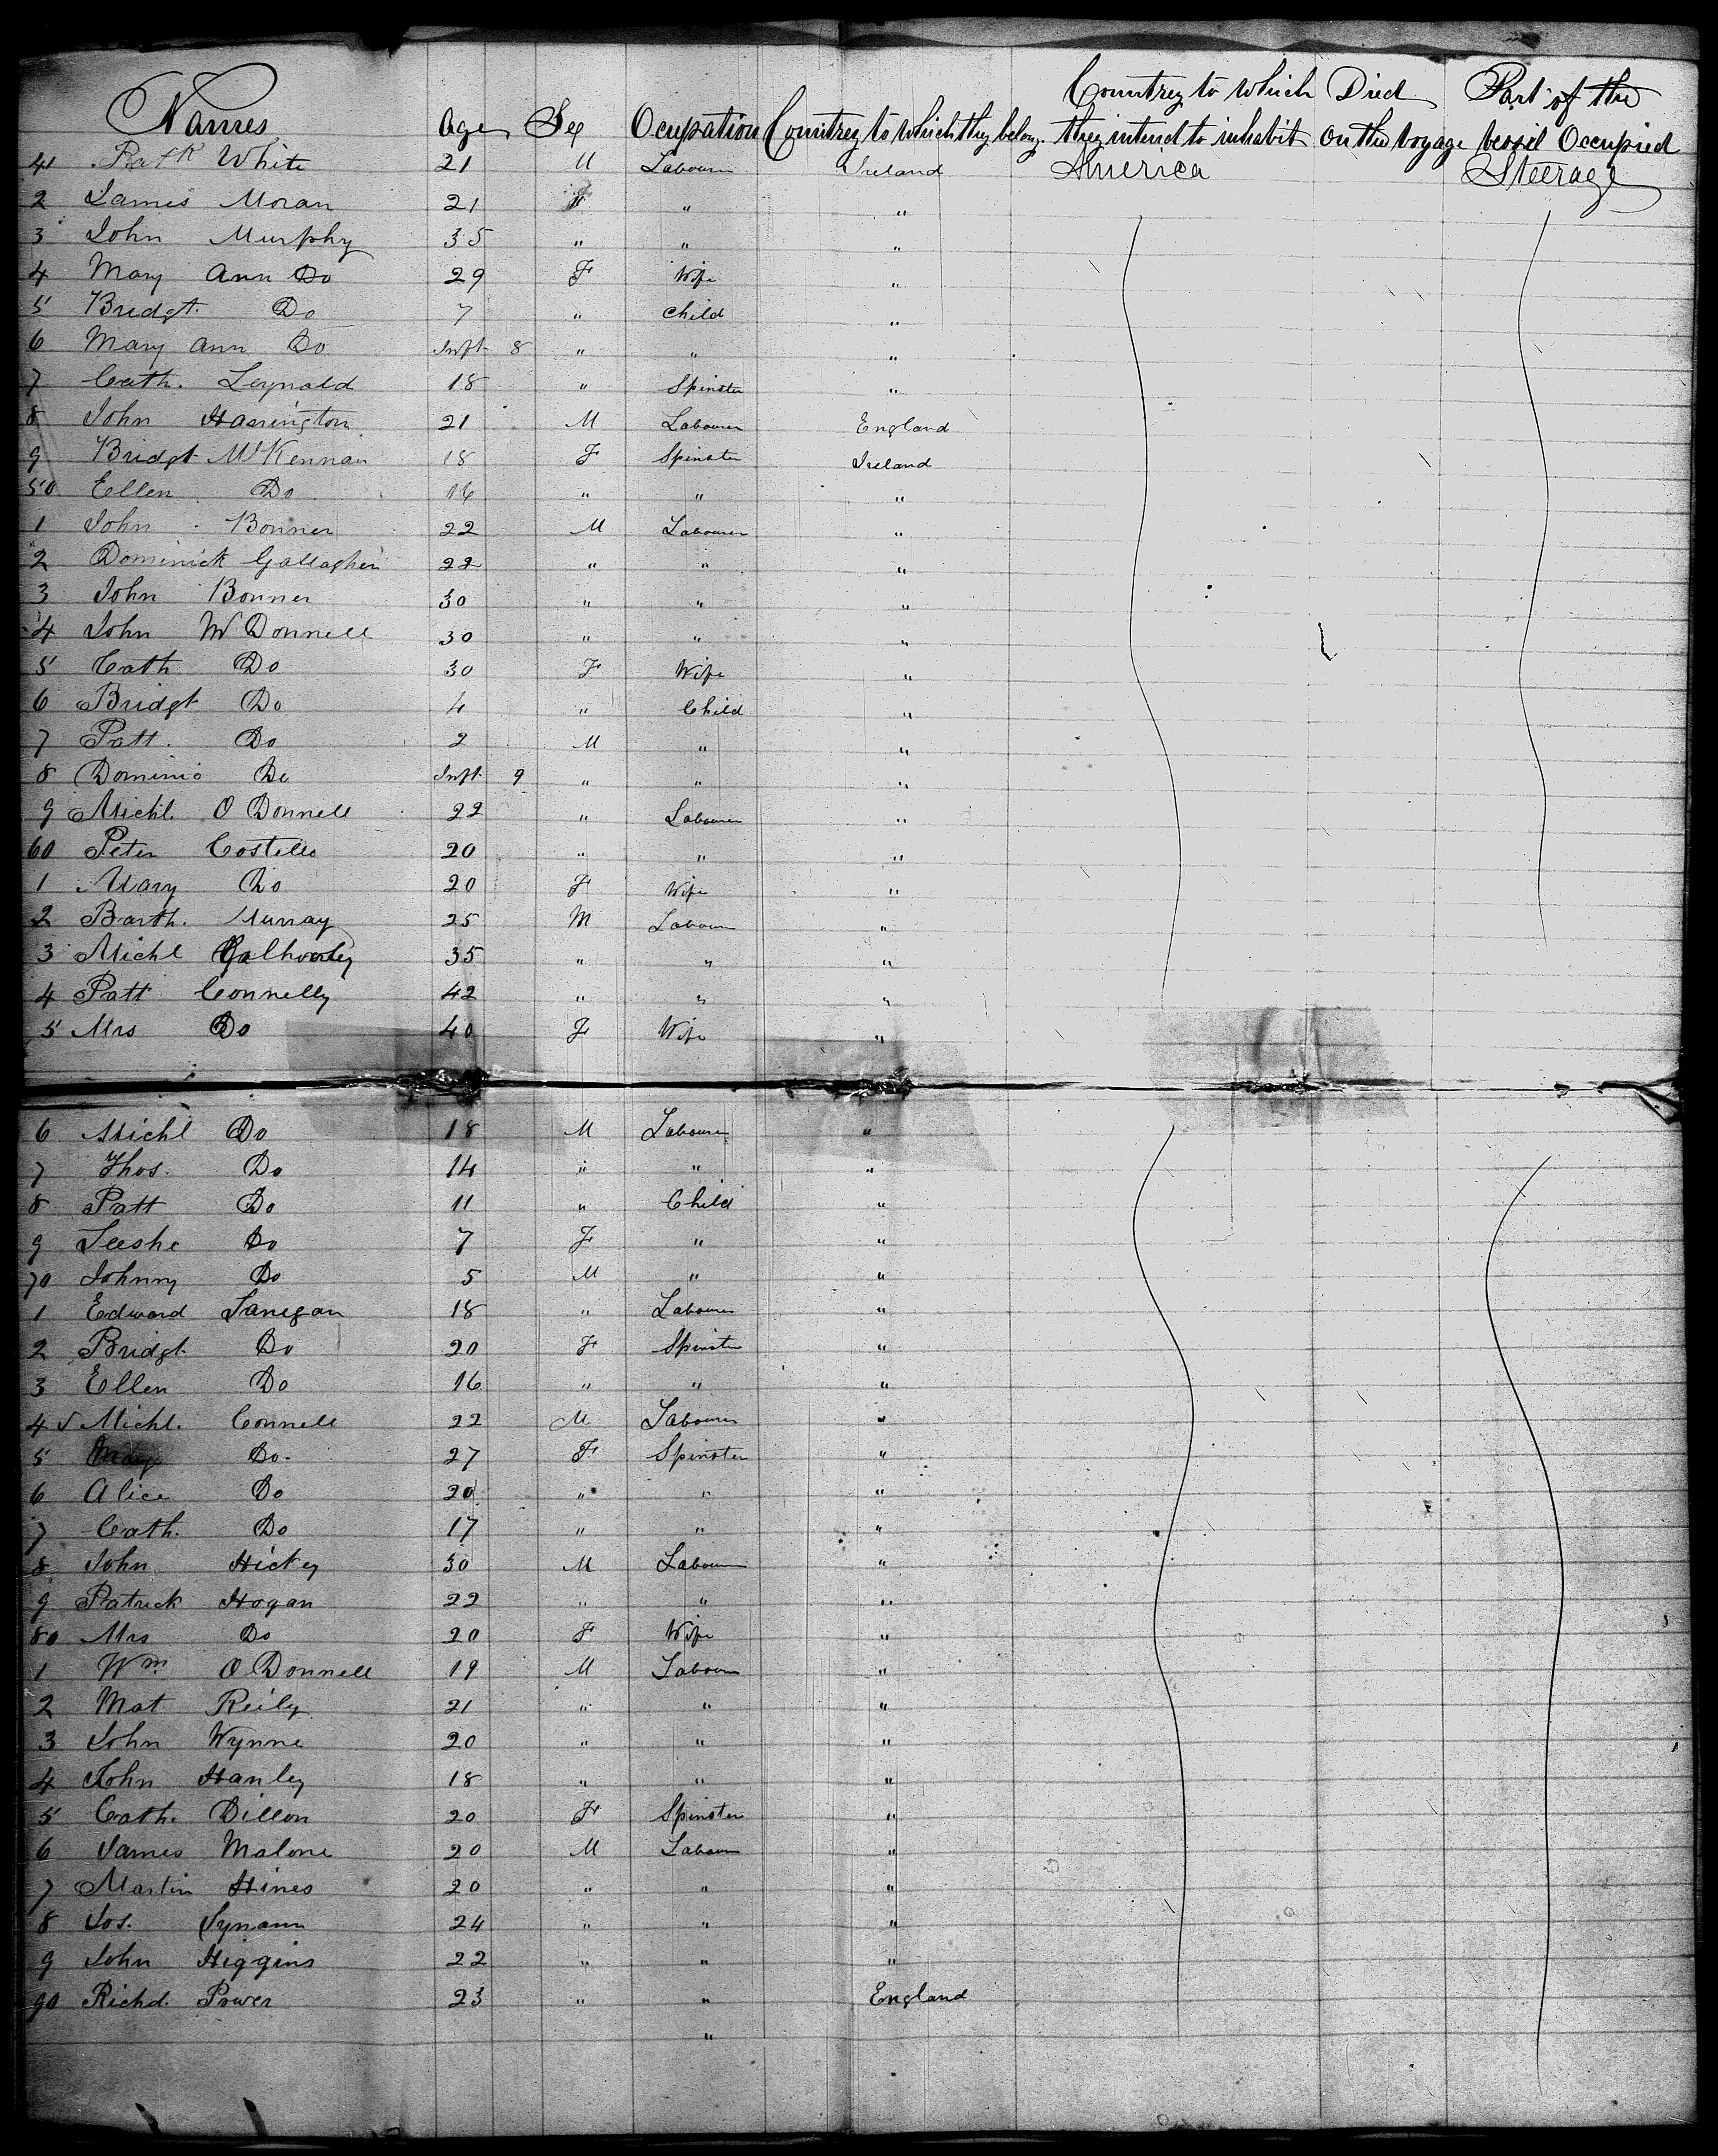 Names Age Sex Ocupation Countrey to which they belong. Countrey to which they intend to inhabit Died on the voyage Part of the vessel Occupied
41 Patk White 21 M Labourer Ireland America Steerage
2 James Moran 21 " " "
3 John Murphy 35 " " "
4 Mary Ann Do 29 F Wife "
5 Bridgt. Do 7 " Child "
6 Mary Ann Do Inft 8 " " "
7 Cath. Leynald 18 " Spinster "
8 John Harrington 21 M Labourer England
9 Bridgt McKennan 18 F Spinster Ireland
50 Ellen Do 16 " " "
1 John Bonner 22 M Labourer "
2 Dominick Gallagher 22 " " "
3 John Bonner 30 " " "
4 John McDonnell 30 " " "
5 Cath Do 30 F Wife "
6 Bridgt Do 4 " Child "
7 Patt. Do 2 M " "
8 Dominic Do Inft 9 " " "
9 Michl. O Donnell 22 " Labourer "
60 Peter Costello 20 " " "
1 Mary Do 20 F Wife "
2 Barth. Murray 25 M Labourer "
3 Michl 35 " " "
4 Patt Connelly 42 " " "
5 Mrs Do 40 F Wife "
6 Michl Do 18 M Labourer "
7 Thos. Do 14 " " "
8 Patt Do 11 " Child "
9 Do 7 F " "
70 Johnny Do 5 M " "
1 Edward Lanegan 18 " Labourer "
2 Bridgt Do 20 F Spinster "
3 Ellen Do 16 " " "
4 Michl. Connell 22 M Labourer "
5 Mary Do. 27 F Spinster "
6 Alice Do 20 " " "
7 Cath. Do 17 " " "
8 John Hickey 30 M Labourer "
9 Patrick Hogan 22 " " "
80 Mrs Do 20 F Wife "
1 Wm O Donnell 19 M Labourer "
2 Mat Reily 21 " " "
3 John Wynne 20 " " "
4 John Hanley 18 " " "
5 Cath. Dillon 20 F Spinster "
6 James Malone 20 M Labourer "
7 Martin Hines 20 " " "
8 Jos. 24 " " "
9 John Higgins 22 " " "
90 Richd. Power 23 " " England
"